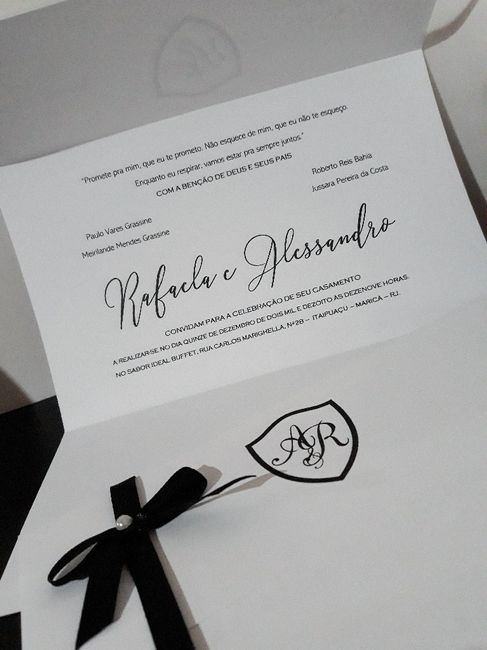 "Promete pra mim, que eu te prometo. Não esquece de mim, que eu não te esqueço.
Enquanto eu respirar, vamos estar pra sempre juntos."
COM A BENÇÃO DE DEUS E SEUS PAIS
Paulo Vares Grassine
Meirilande Mendes Grassine
Roberto Reis Bahia
Jussara Pereira da Costa
Rafaela e Alessandro
CONVIDAM PARA A CELEBRAÇÃO DE SEU CASAMENTO
A REALIZAR-SE NO DIA QUINZE DE DEZEMBRO DE DOIS MIL E DEZOITO ÀS DEZENOVE HORAS.
NO SABOR IDEAL BUFFET, RUA CARLOS MARIGHELLA, Nº28 – ITAIPUAÇU – MARICA – RJ.
A&R